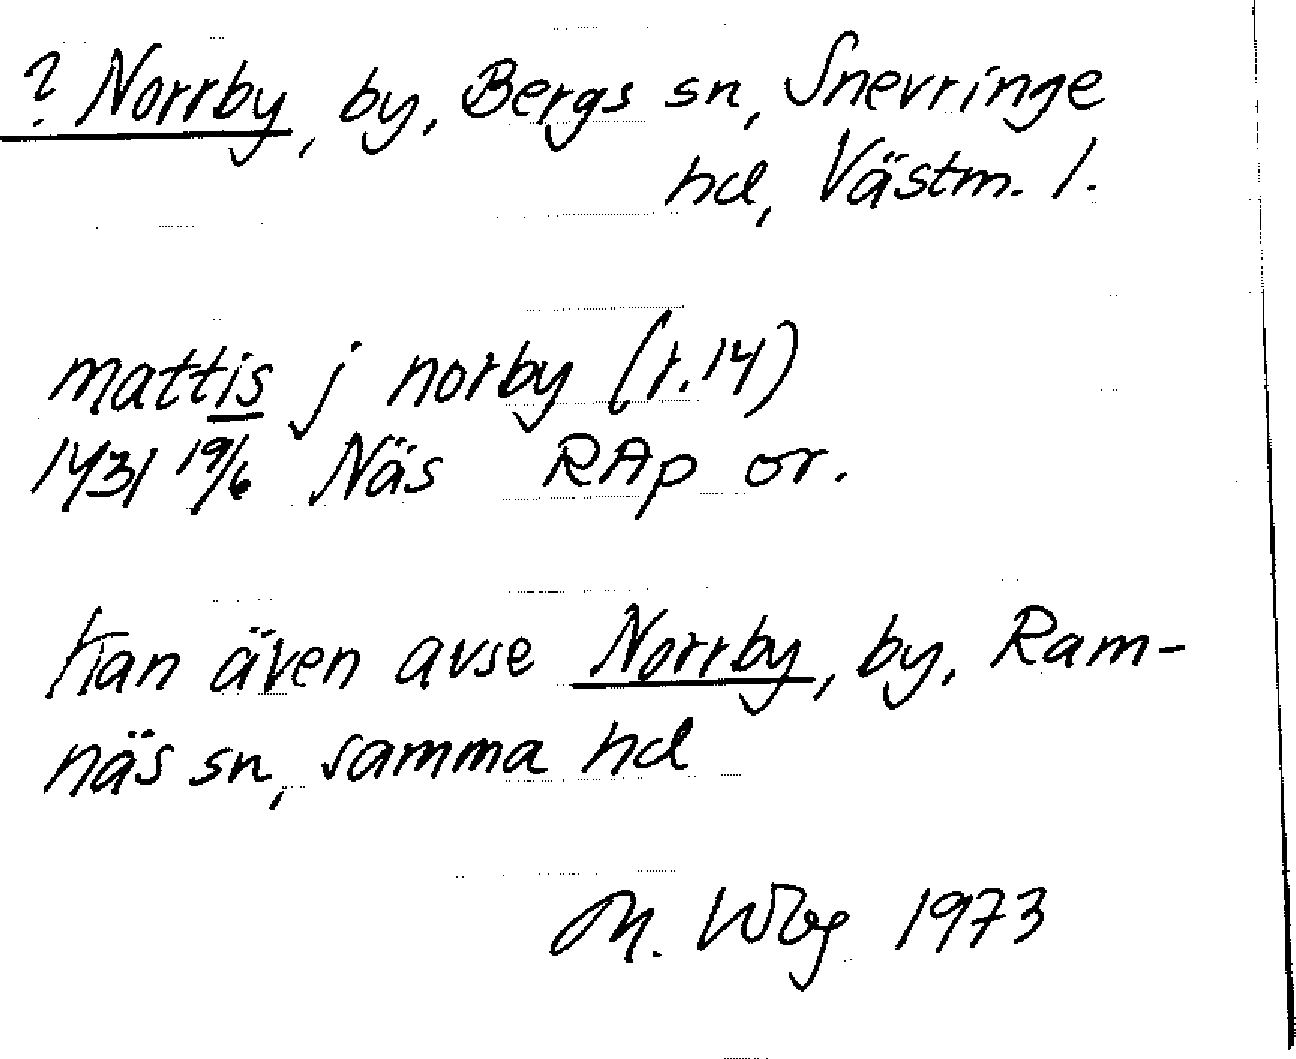 ? Norrby, by, Bergs sn, Snevringe
hd, Västm. l.
mattis j norby (r. 14)
1431 19/6 Näs RAp or.
Kan även avse Norrby, by, Ram-
näs sn, samma hd
M. Wbg 1973